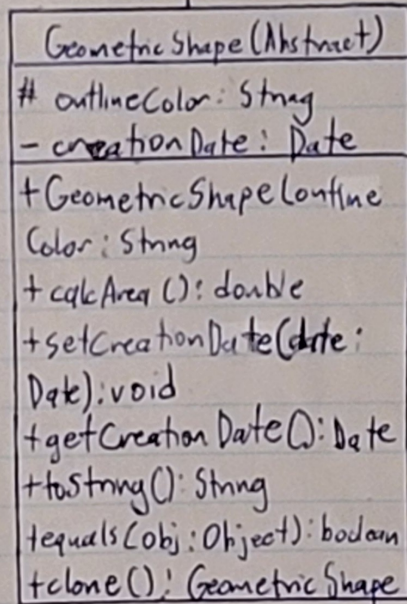 GeometricShape(Abstract)
# outlineColor: String
- creationDate: Date
+GeometricShape(outline
Color: String
+calcArea(): double
+setCreationDate(date:
Date): void
+getCreationDate(): Date
+toString(): String
+equals(obj: Object): boolean
+clone(): GeometricShape